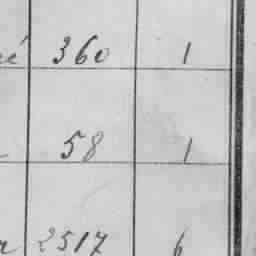 360 1
58 1
2517 6